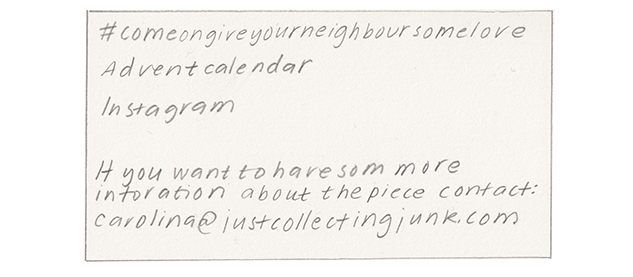 #comeongiveyourneighboursomelove
Advent calendar
Instagram
If you want to have som more
intoration about the piece contact:
carolina@justcollectingjunk.com